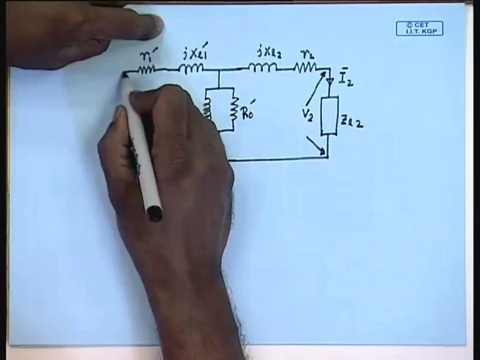 © CET
I.I.T. KGP
r₁′ jXℓ₁′ jXℓ₂ r₂
Ī₂
R₀′ V₂ Zℓ₂